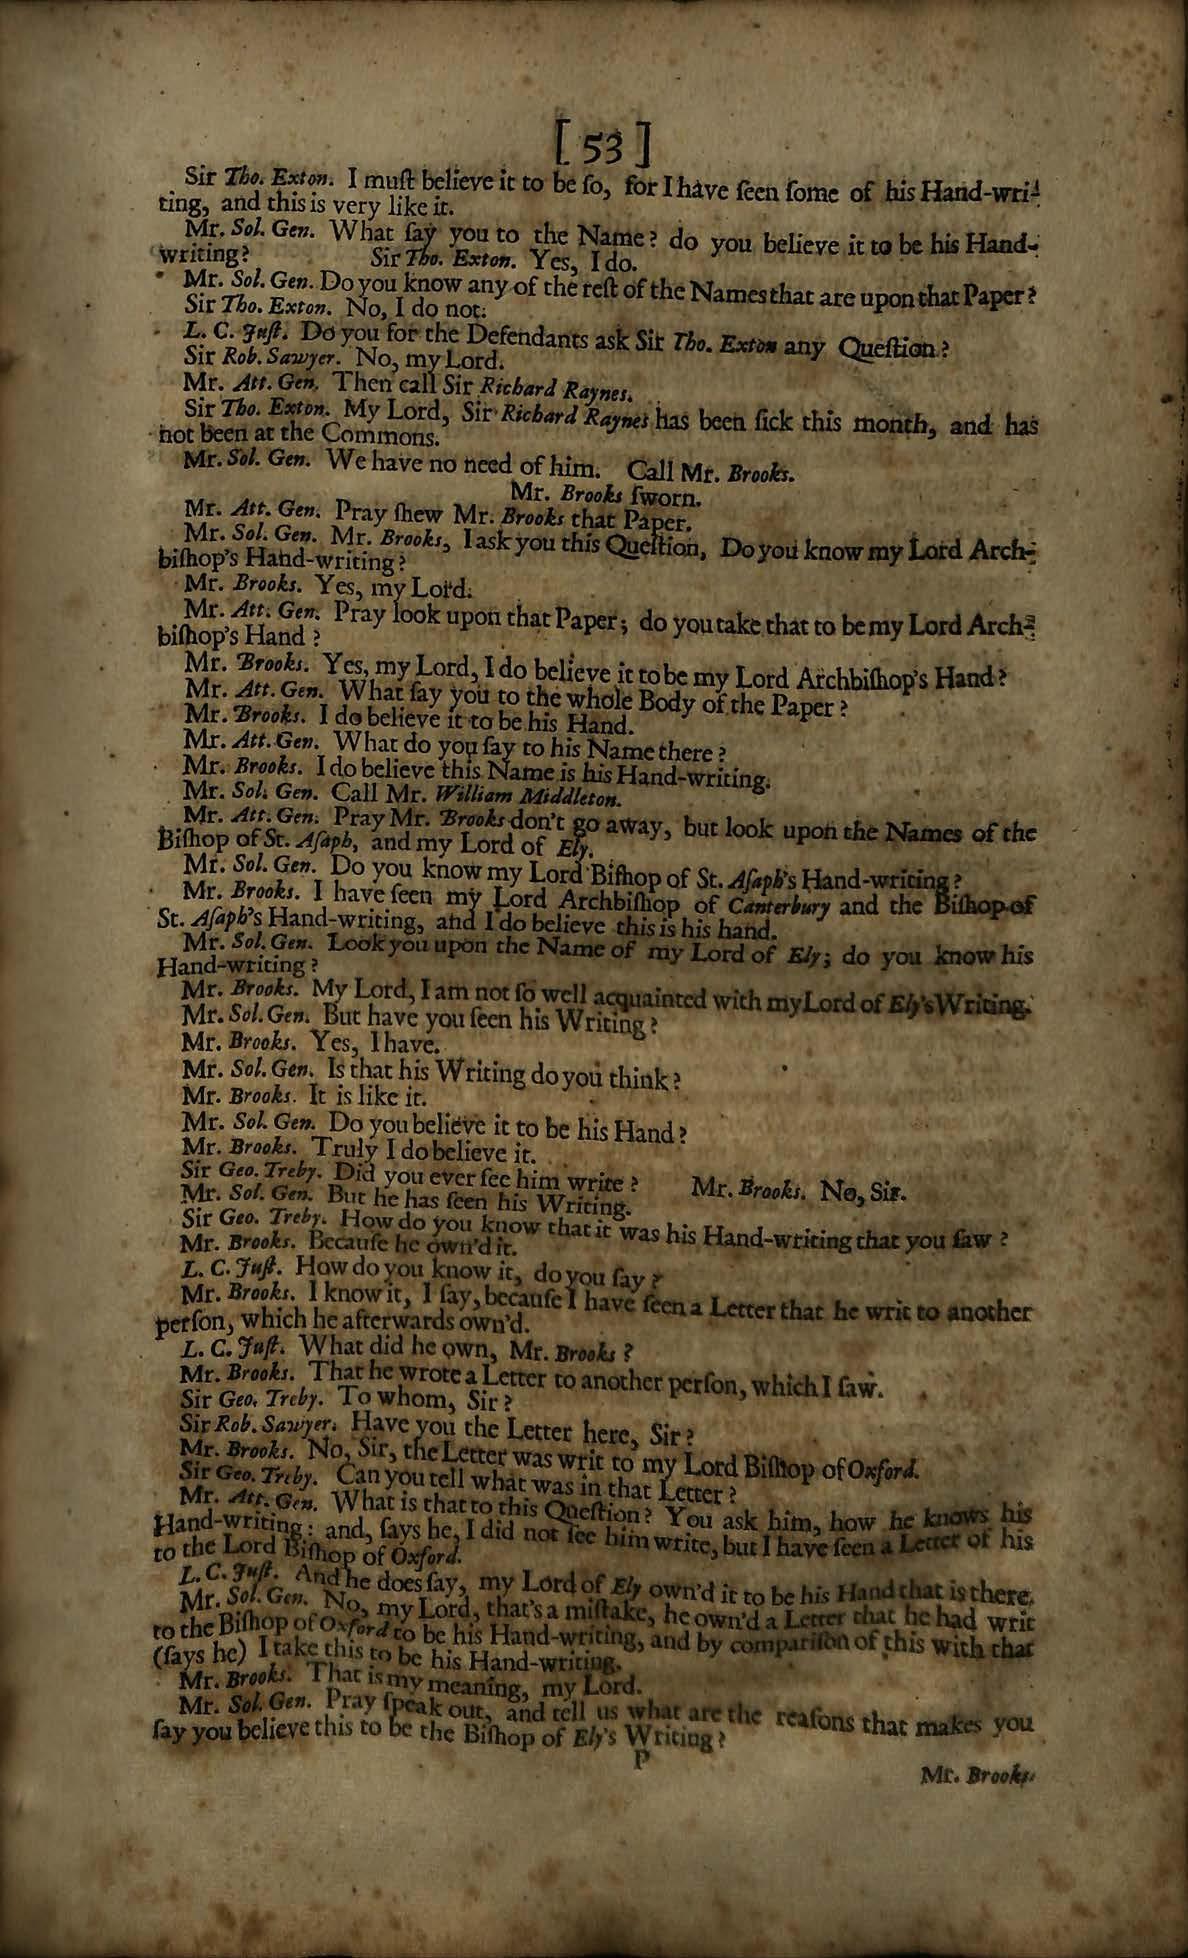 [ 53 ]
Sir Tho. Exton. I muſt believe it to be ſo, for I have ſeen ſome of his Hand-wri-
ting, and this is very like it.
Mr. Sol. Gen. What ſay you to the Name? do you believe it to be his Hand-
writing? Sir Tho. Exton. Yes, I do.
Mr. Sol. Gen. Do you know any of the reſt of the Names that are upon that Paper?
Sir Tho. Exton. No, I do not.
L. C. Juſt. Do you for the Defendants ask Sir Tho. Exton any Queſtion?
Sir Rob. Sawyer. No, my Lord.
Mr. Att. Gen. Then call Sir Richard Raynes.
Sir Tho. Exton. My Lord, Sir Richard Raynes has been ſick this month, and has
not been at the Commons.
Mr. Sol. Gen. We have no need of him. Call Mr. Brooks.
Mr. Brooks ſworn.
Mr. Att. Gen. Pray ſhew Mr. Brooks that Paper.
Mr. Sol. Gen. Mr. Brooks, I ask you this Queſtion, Do you know my Lord Arch-
biſhop's Hand-writing?
Mr. Brooks. Yes, my Lord.
Mr. Att. Gen. Pray look upon that Paper; do you take that to be my Lord Arch-
biſhop's Hand?
Mr. Brooks. Yes, my Lord, I do believe it to be my Lord Archbiſhop's Hand?
Mr. Att. Gen. What ſay you to the whole Body of the Paper?
Mr. Brooks. I do believe it to be his Hand.
Mr. Att. Gen. What do you ſay to his Name there?
Mr. Brooks. I do believe this Name is his Hand-writing.
Mr. Sol. Gen. Call Mr. William Middleton.
Mr. Att. Gen. Pray Mr. Brooks don't go away, but look upon the Names of the
Biſhop of St. Aſaph, and my Lord of Ely.
Mr. Sol. Gen. Do you know my Lord Biſhop of St. Aſaph's Hand-writing?
Mr. Brooks. I have ſeen my Lord Archbiſhop of Canterbury and the Biſhop of
St. Aſaph's Hand-writing, and I do believe this is his hand.
Mr. Sol. Gen. Look you upon the Name of my Lord of Ely; do you know his
Hand-writing?
Mr. Brooks. My Lord, I am not ſo well acquainted with my Lord of Ely's Writing.
Mr. Sol. Gen. But have you ſeen his Writing?
Mr. Brooks. Yes, I have.
Mr. Sol. Gen. Is that his Writing do you think?
Mr. Brooks. It is like it.
Mr. Sol. Gen. Do you believe it to be his Hand?
Mr. Brooks. Truly I do believe it.
Sir Geo. Treby. Did you ever ſee him write? Mr. Brooks. No, Sir.
Mr. Sol. Gen. But he has ſeen his Writing.
Sir Geo. Treby. How do you know that it was his Hand-writing that you ſaw?
Mr. Brooks. Becauſe he own'd it.
L. C. Juſt. How do you know it, do you ſay?
Mr. Brooks. I know it, I ſay, becauſe I have ſeen a Letter that he writ to another
perſon, which he afterwards own'd.
L. C. Juſt. What did he own, Mr. Brooks?
Mr. Brooks. That he wrote a Letter to another perſon, which I ſaw.
Sir Geo. Treby. To whom, Sir?
Sir Rob. Sawyer. Have you the Letter here, Sir?
Mr. Brooks. No, Sir, the Letter was writ to my Lord Biſhop of Oxford.
Sir Geo. Treby. Can you tell what was in that Letter?
Mr. Att. Gen. What is that to this Queſtion? You ask him, how he knows his
Hand-writing: and, ſays he, I did not ſee him write, but I have ſeen a Letter of his
to the Lord Biſhop of Oxford.
L. C. Juſt. And he does ſay, my Lord of Ely own'd it to be his Hand that is there.
Mr. Sol. Gen. No, my Lord, that's a miſtake, he own'd a Letter that he had writ
to the Biſhop of Oxford to be his Hand-writing, and by compariſon of this with that
(ſays he) I take this to be his Hand-writing.
Mr. Brooks. That is my meaning, my Lord.
Mr. Sol. Gen. Pray ſpeak out, and tell us what are the reaſons that makes you
ſay you believe this to be the Biſhop of Ely's Writing?
P
Mr. Brooks.